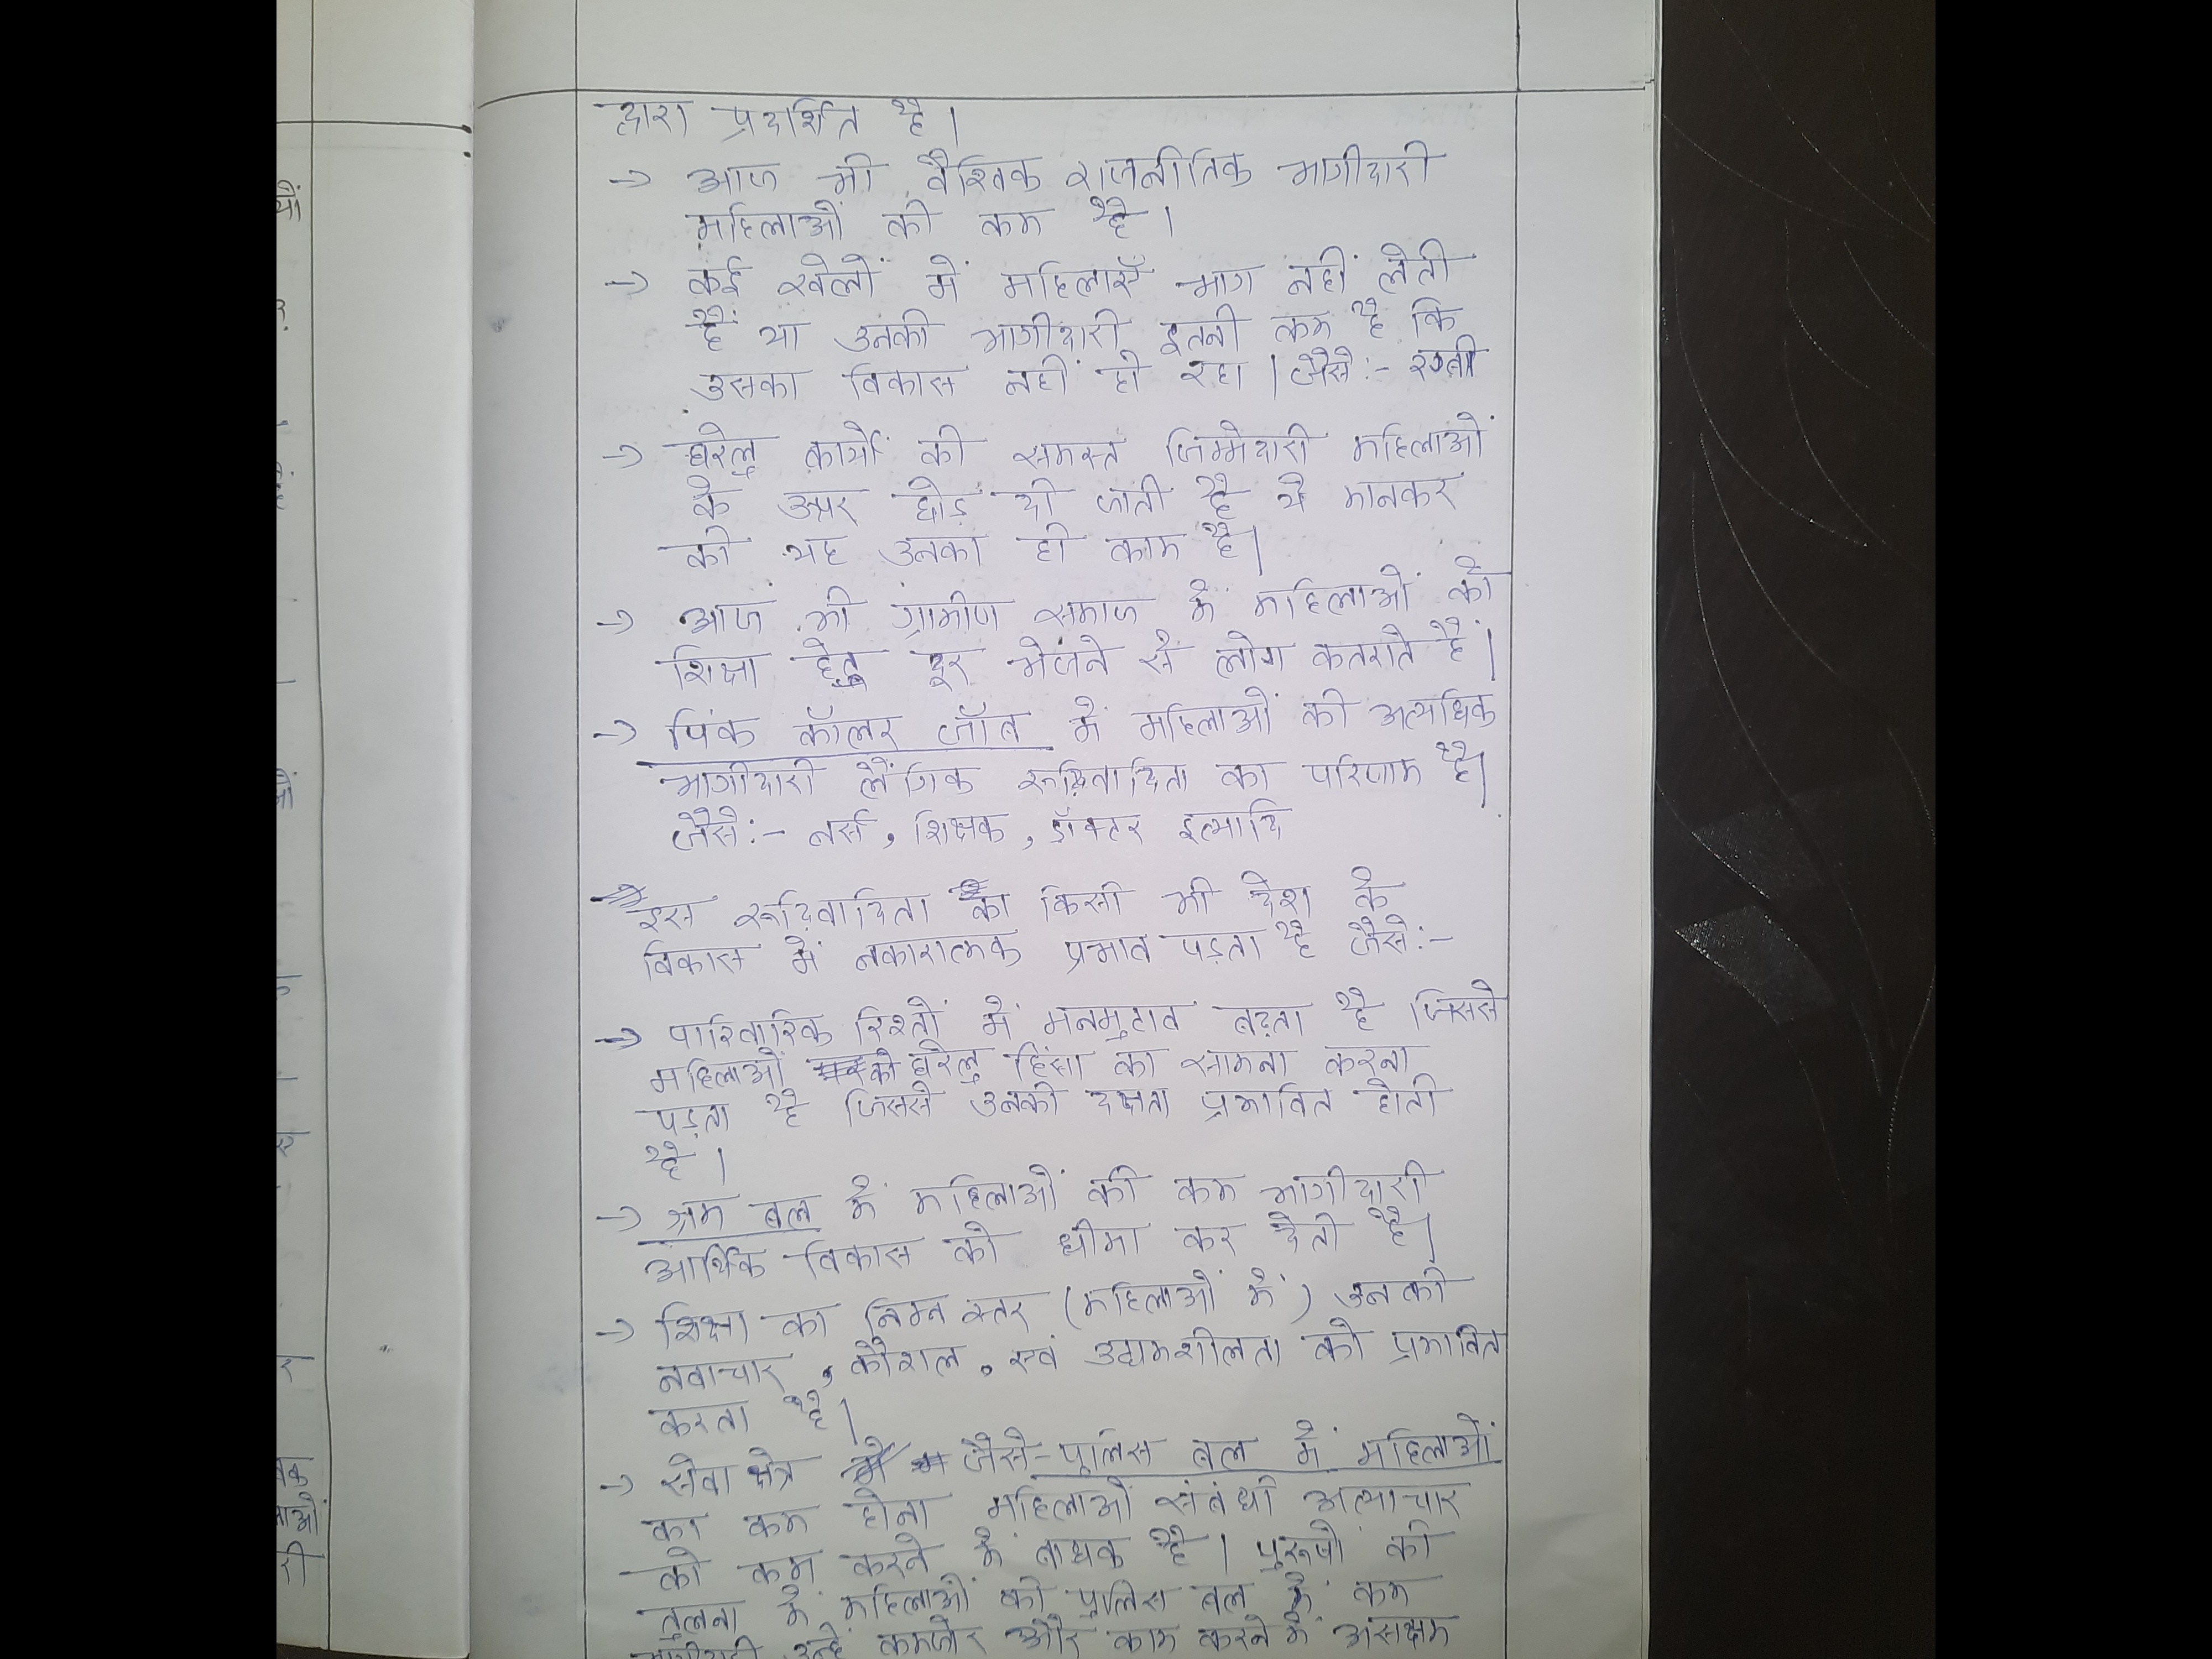 द्वारा प्रदर्शित है।
→ आज भी वैश्विक राजनीतिक भागीदारी
महिलाओं की कम है।
→ कई खेलों में महिलाएँ भाग नहीं लेती
हैं या उनकी भागीदारी इतनी कम है कि
उसका विकास नहीं हो रहा। जैसे:- रग्बी
→ घरेलु कार्यों की समस्त जिम्मेदारी महिलाओं
के ऊपर छोड़ दी जाती है ये मानकर
की यह उनका ही काम है।
→ आज भी ग्रामीण समाज में महिलाओं को
शिक्षा हेतु दूर भेजने से लोग कतराते हैं।
→ पिंक कॉलर जॉब में महिलाओं की अत्यधिक
भागीदारी लैंगिक रूढ़िवादिता का परिणाम है।
जैसे:- नर्स, शिक्षक, डॉक्टर इत्यादि
इस रूढ़िवादिता का किसी भी देश के
विकास में नकारात्मक प्रभाव पड़ता है जैसे:-
→ पारिवारिक रिश्तों में मनमुटाव बढ़ता है जिससे
महिलाओं को घरेलु हिंसा का सामना करना
पड़ता है जिससे उनकी दक्षता प्रभावित होती
है।
→ श्रम बल में महिलाओं की कम भागीदारी
आर्थिक विकास को धीमा कर देती है।
→ शिक्षा का निम्न स्तर (महिलाओं में) उनकी
नवाचार, कौशल, एवं उद्यमशीलता को प्रभावित
करता है।
→ सेवा क्षेत्र जैसे-पुलिस बल में महिलाओं
का कम होना महिलाओं संबंधी अत्याचार
को कम करने में बाधक है। पुरूषों की
तुलना में महिलाओं की पुलिस बल में कम
भागीदारी उन्हें कमजोर और काम करने में असक्षम